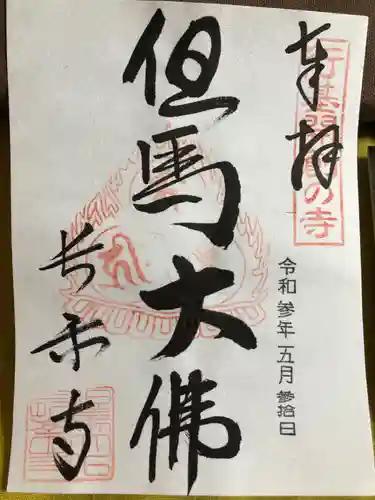 奉拝
行基開基の寺
令和参年五月参拾日
但馬大佛
長楽寺